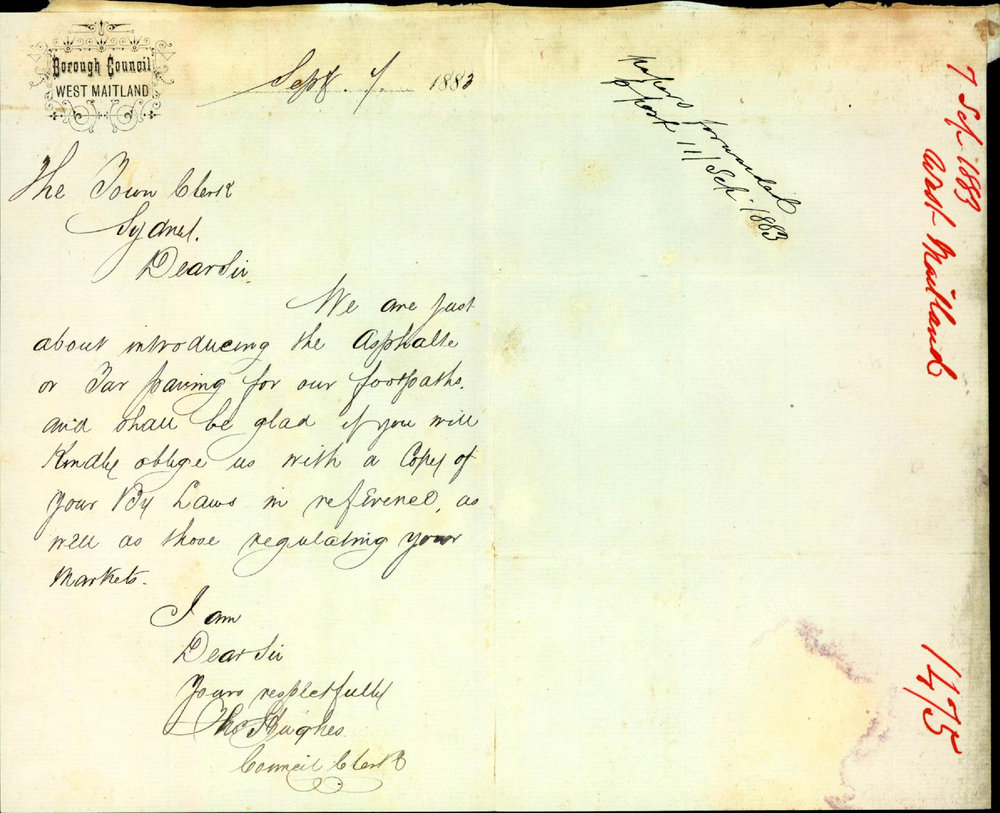 Borough Council
WEST MAITLAND
Sept. 7. 1883
The Town Clerk
Sydney.
Dear Sir,
We are just
about introducing the Asphalte
or Tar paving for our footpaths.
and shall be glad if you will
Kindly oblige us with a Copy of
your By Laws in reference, as
well as those regulating your
Markets.
I am
Dear Sir
Yours respectfully
Tho Hughes
Council Clerk
Papers forwarded
post 11/Sep. 1883
7 Sep 1883
West Maitland
1475